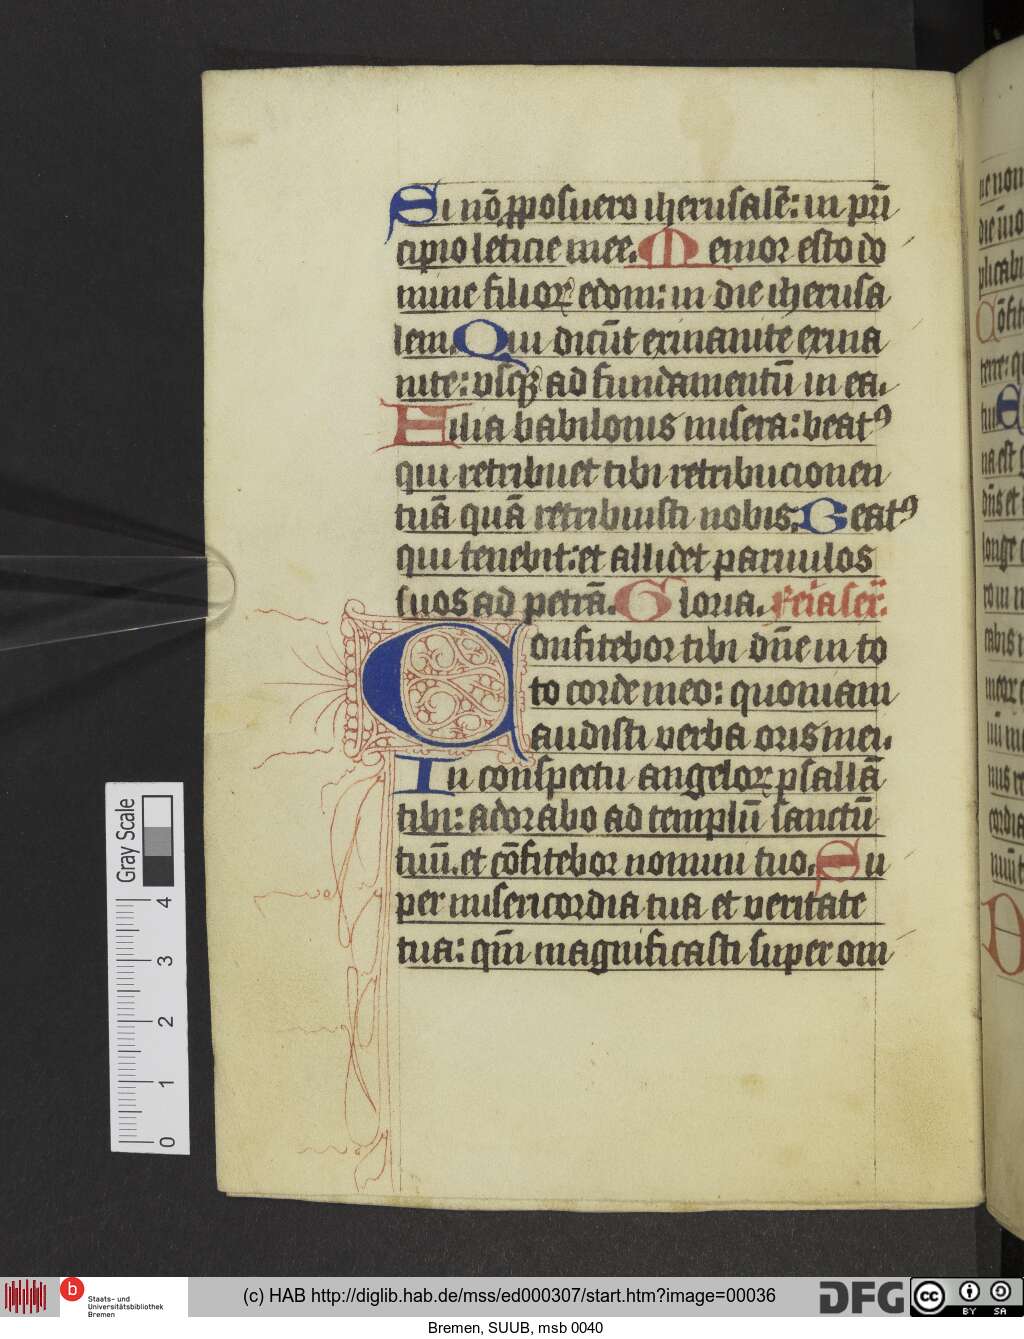 Si nō ꝓposuero iherusalē: in prī
cipio leticie mee. Memor esto do
mine filioꝝ edom: in die iherusa
lem. Qui dicūt exinanite exina
nite: usqꝫ ad fundamentū in ea.
Filia babilonis misera: beatꝰ
qui retribuet tibi retribucionem
tuā quā retribuisti nobis. Beatꝰ
qui tenebit: et allidet paruulos
suos ad petrā. Gloria. Feīa sex̄.
Confitebor tibi dn̄e in to
to corde meo: quoniam
audisti verba oris mei.
In conspectu angeloꝝ psallā
tibi: adorabo ad templū sanctū
tuū. et cōfitebor nomini tuo. Su
per misericordia tua et veritate
tua: qm̄ magnificasti super om
Gray Scale
4
3
2
1
0
b
Staats- und
Universitätsbibliothek
Bremen
(c) HAB http://diglib.hab.de/mss/ed000307/start.htm?image=00036
DFG
cc
BY SA
Bremen, SUUB, msb 0040